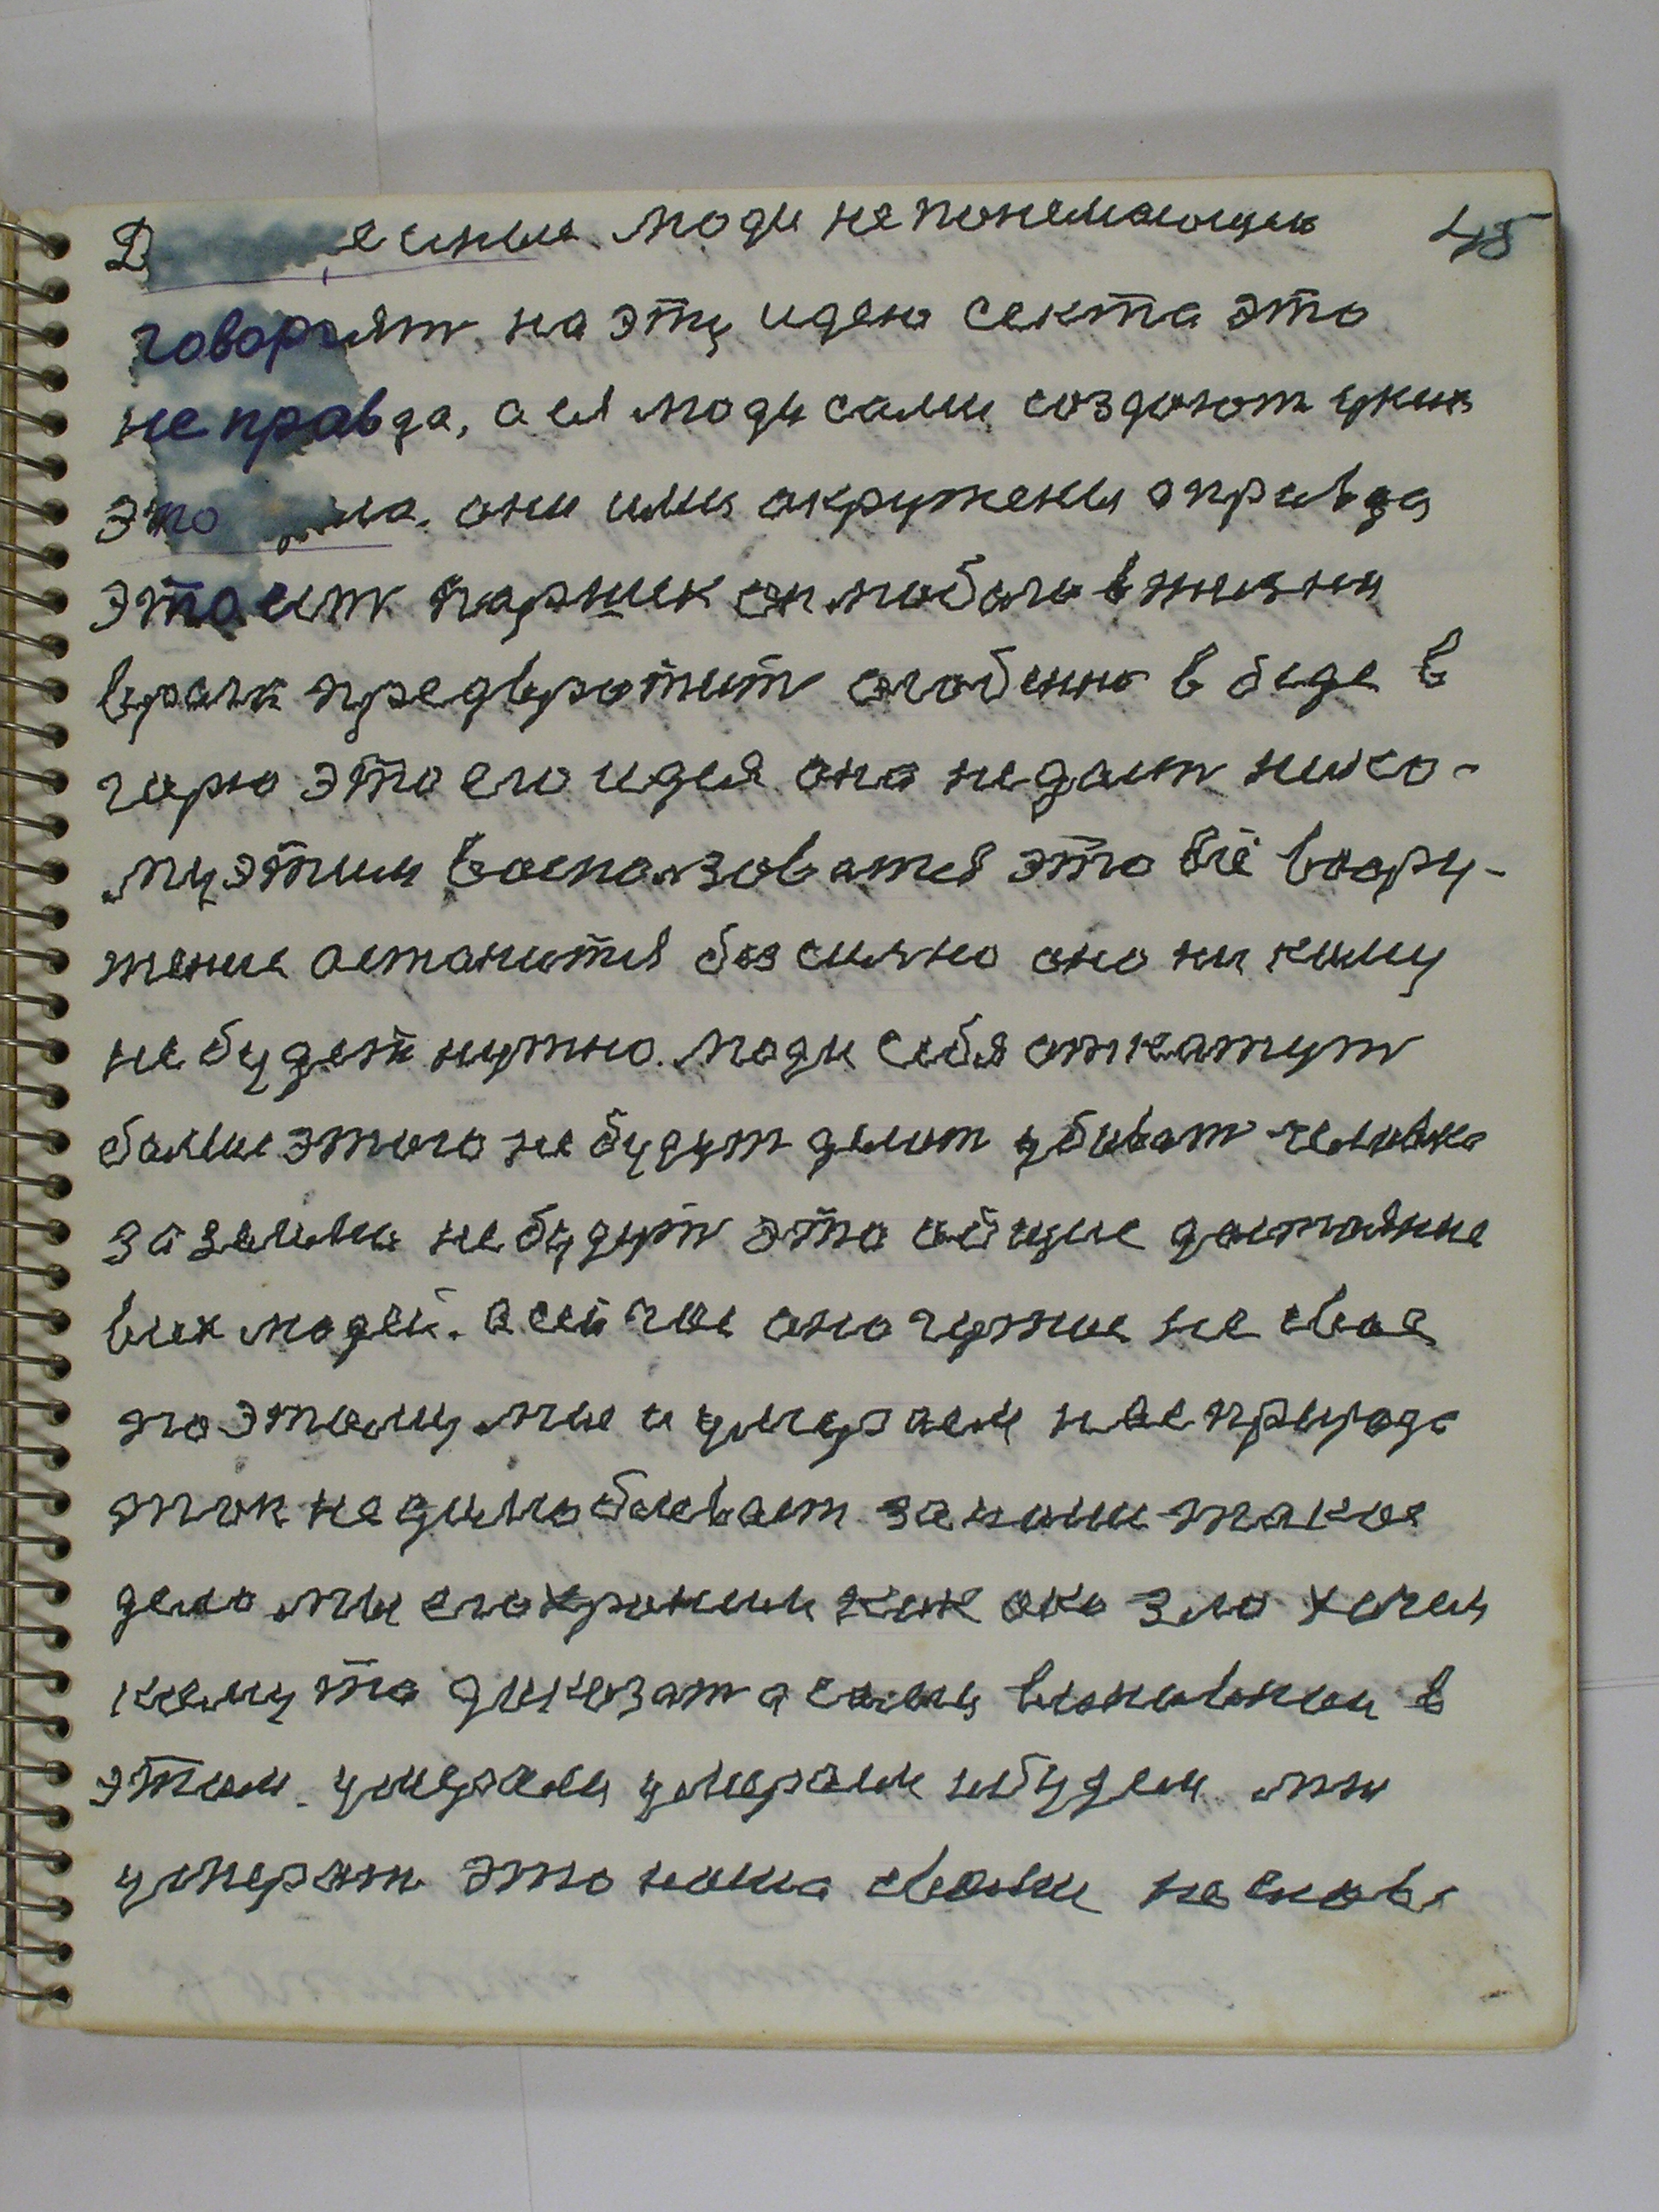 45
люди не понемающие
говорят на эту идею секта это
не правда, а ея люди сами создают
это они ими окружены а правда
это паршек он любого в жизни
врага предвротит особенно в беде в
горю это его идея она не дает нико-
му этим воспользоватся это всё воору-
жение останится безсильно оно ни кому
не будет нужно. люди себя откажут
больше этого не будут делат убиват человека
за землю не будут это общие достояние
всех людей. а сейчас оно чужое не свое
поэтому мы и умераем нас природа
так не за наши такое
дело мы его храним как око зло хочем
кому то доказат а сами виновники в
этом. умерали умераем и будем мы
умерат это наша